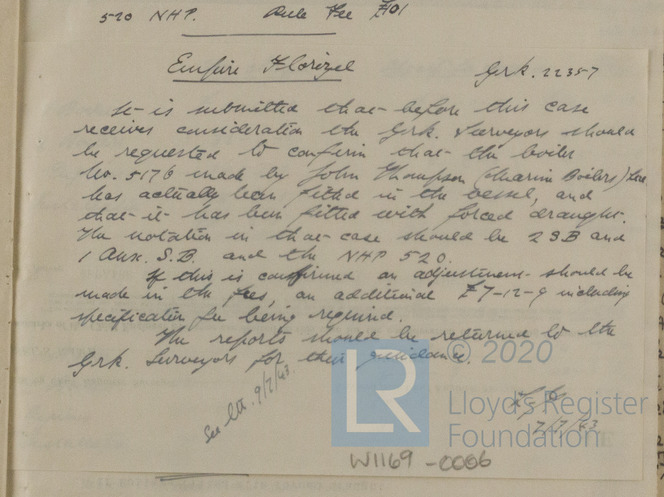 520 NHP. Rule Fee £101
Empire Florizel Grk. 22357
It is submitted that before this case
receives consideration the Grk. Surveyors should
be requested to confirm that the boiler
No. 5176 made by John Thompson (Marine Boilers) Ltd
has actually been fitted in the vessel, and
that it has been fitted with forced draught.
The notation in that case should be 2SB and
1 Aux. S.B. and the NHP 520.
If this is confirmed an adjustment should be
made in the fees, an additional £7-12-9 including
specification fee being required.
The reports should be returned to the
Grk. Surveyors for their guidance.
See ltr. 9/7/43
7/7/43
LR
© 2020
Lloyd's Register
Foundation
W1169-0006